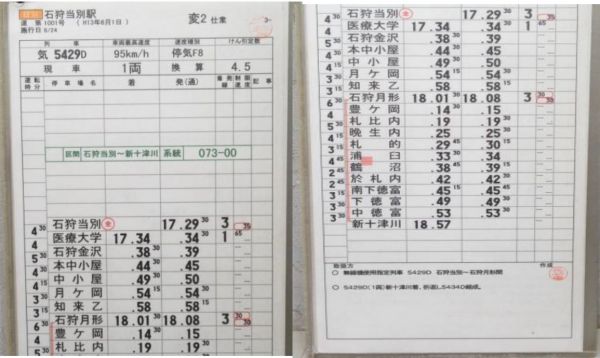 石狩当別駅
変2 仕業
達 第 1001号 (H13年6月1日)
施行日 6/24
列車
車両最高速度
速度種別
けん引定数
気 5429D
95km/h
停気F8
現車
1両
換算
4.5
運転時分
停車場名
着
発(通)
着発線
制限速度
記事
区間 石狩当別~新十津川 系統 073-00
石狩当別 17.29 30 3 35
4 30 医療大学 17.34 .34 30 1 65
4 石狩金沢 .38 30 .39
5 本中小屋 .44 30 .45
4 中小屋 .49 .50
4 月ケ岡 .54 30 .54 45
3 知来乙 .58 .58 15
石狩月形 18.01 30 18.08 3
6 豊ケ岡 .14 30 .15
4 札比内 .19 30 .19
石狩当別 17.29 30 3 35
医療大学 17.34 .34 30 1 65
石狩金沢 .38 30 .39
本中小屋 .44 30 .45
中小屋 .49 .50
月ケ岡 .54 30 .54 45
知来乙 .58 .58 15
石狩月形 18.01 30 18.08 3
豊ケ岡 .14 30 .15
札比内 .19 30 .19
晩生内 .25 .25 30
札的 .29 45 .30 15
浦臼 .33 30 .34
鶴沼 .38 .39
於札内 .42 .42 30
南下徳富 .45 15 .45
下徳富 .49 .49
中徳富 .53 .53 30
新十津川 18.57
取扱方
作成
○ 無線機使用指定列車 5429D 石狩当別~石狩月形間
○ 5429D(1両)新十津川着、折返し5434D組成。